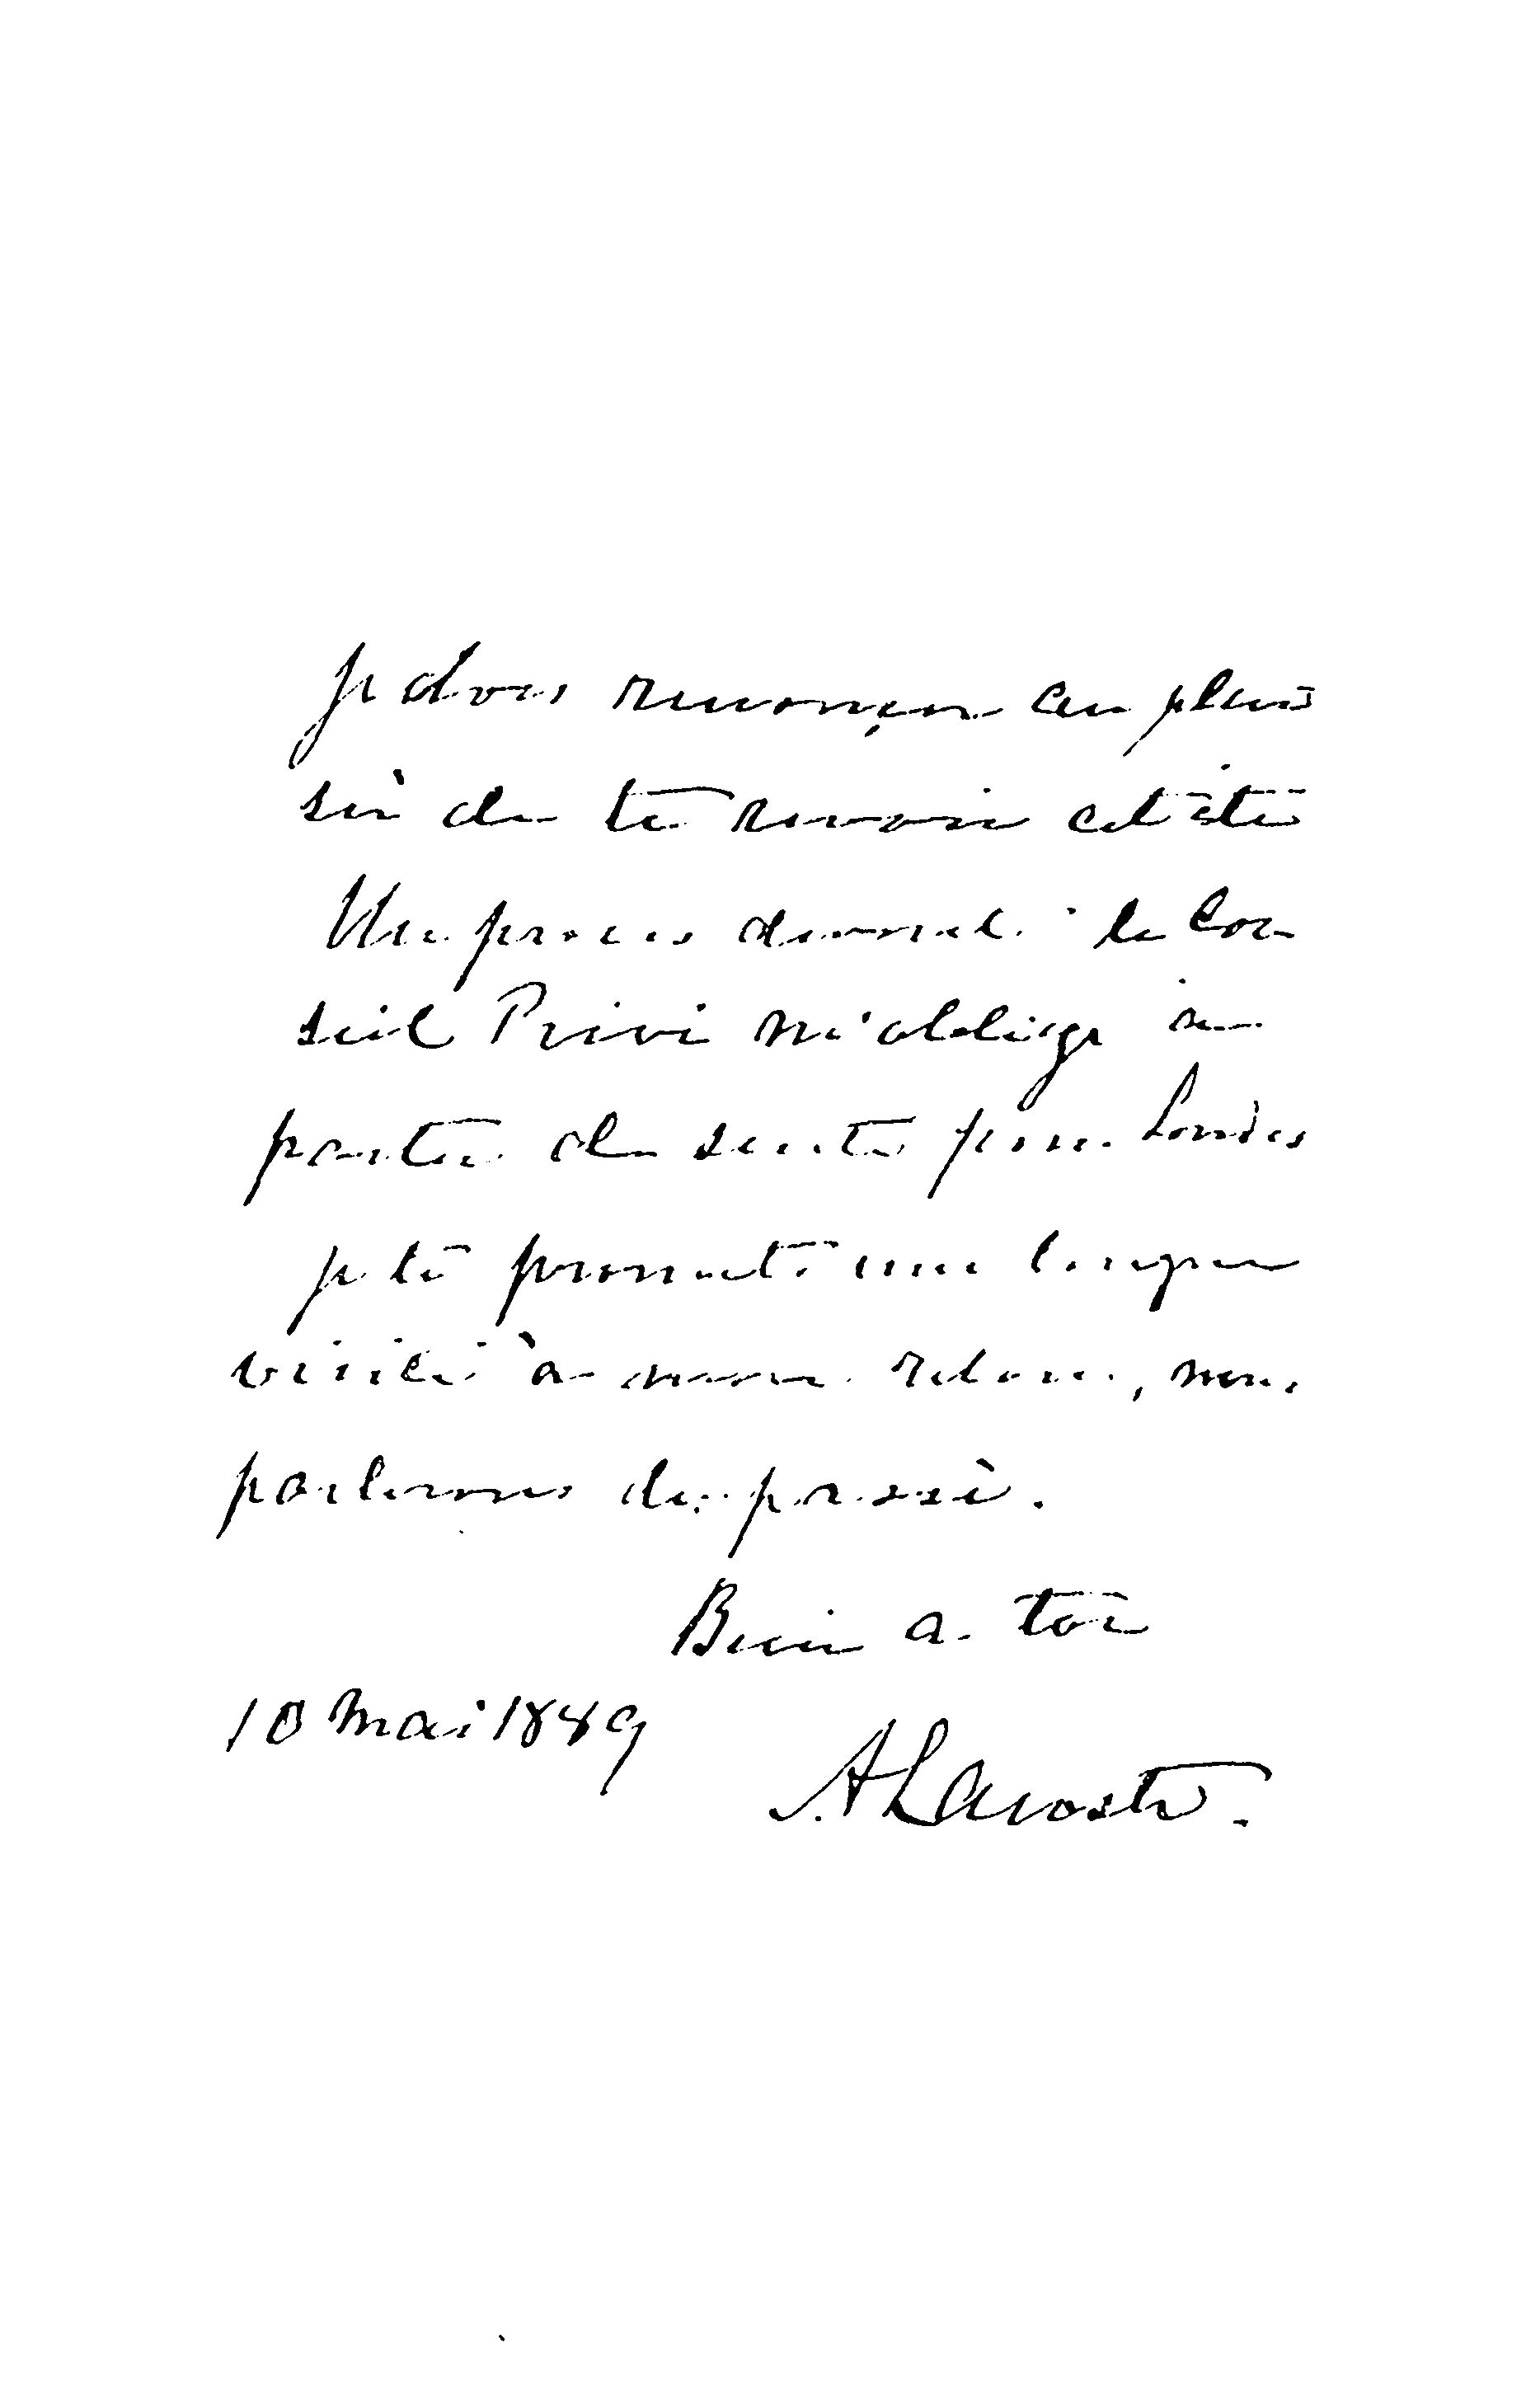 Je dois renonçer au plai
sir de te revoir cet été
Un procès devant le Con
seil Privé m'oblige à
partir de suite pour Londres
Je te promets une longue
visite à mon retour, nous
parlerons du passé.
Bien à toi
10 Mai 1889
A Lacoste.